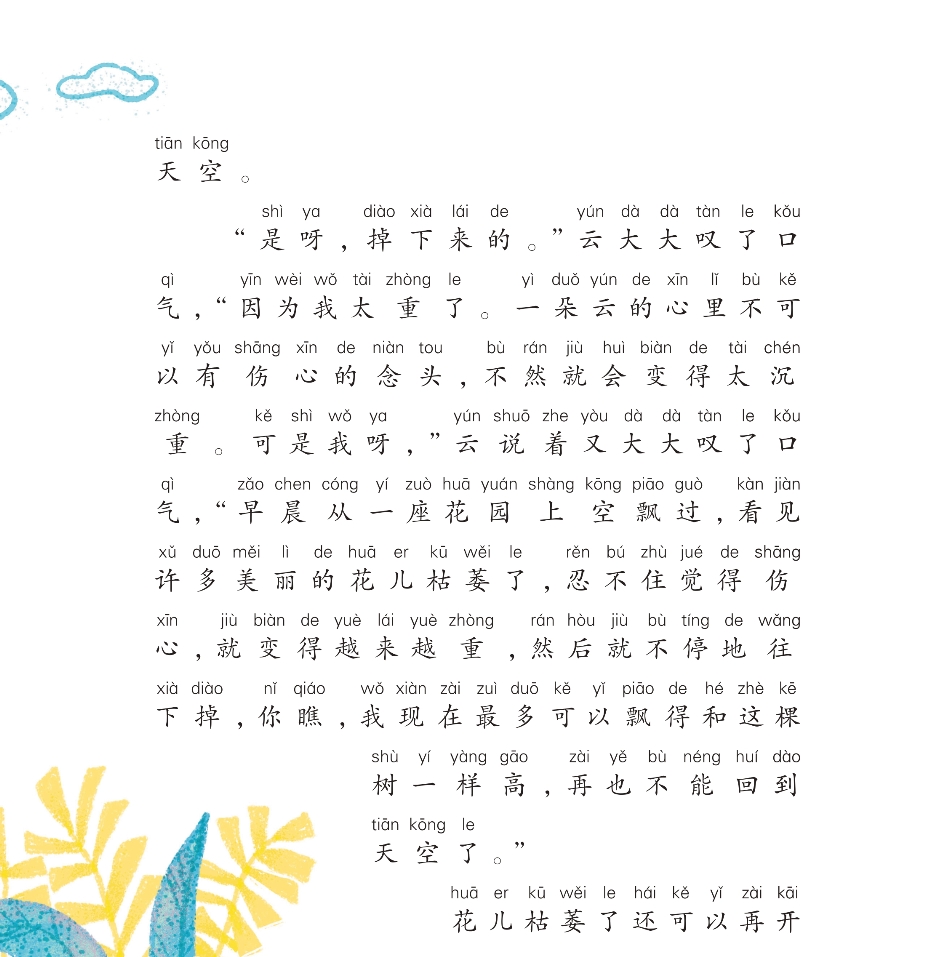 tiān kōng
天空。
shì ya diào xià lái de yún dà dà tàn le kǒu
“是呀，掉下来的。”云大大叹了口
qì yīn wèi wǒ tài zhòng le yì duǒ yún de xīn lǐ bù kě
气，“因为我太重了。一朵云的心里不可
yǐ yǒu shāng xīn de niàn tou bù rán jiù huì biàn de tài chén
以有伤心的念头，不然就会变得太沉
zhòng kě shì wǒ ya yún shuō zhe yòu dà dà tàn le kǒu
重。可是我呀，”云说着又大大叹了口
qì zǎo chen cóng yí zuò huā yuán shàng kōng piāo guò kàn jiàn
气，“早晨从一座花园上空飘过，看见
xǔ duō měi lì de huā er kū wěi le rěn bú zhù jué de shāng
许多美丽的花儿枯萎了，忍不住觉得伤
xīn jiù biàn de yuè lái yuè zhòng rán hòu jiù bù tíng de wǎng
心，就变得越来越重，然后就不停地往
xià diào nǐ qiáo wǒ xiàn zài zuì duō kě yǐ piāo de hé zhè kē
下掉，你瞧，我现在最多可以飘得和这棵
shù yí yàng gāo zài yě bù néng huí dào
树一样高，再也不能回到
tiān kōng le
天空了。”
huā er kū wěi le hái kě yǐ zài kāi
花儿枯萎了还可以再开